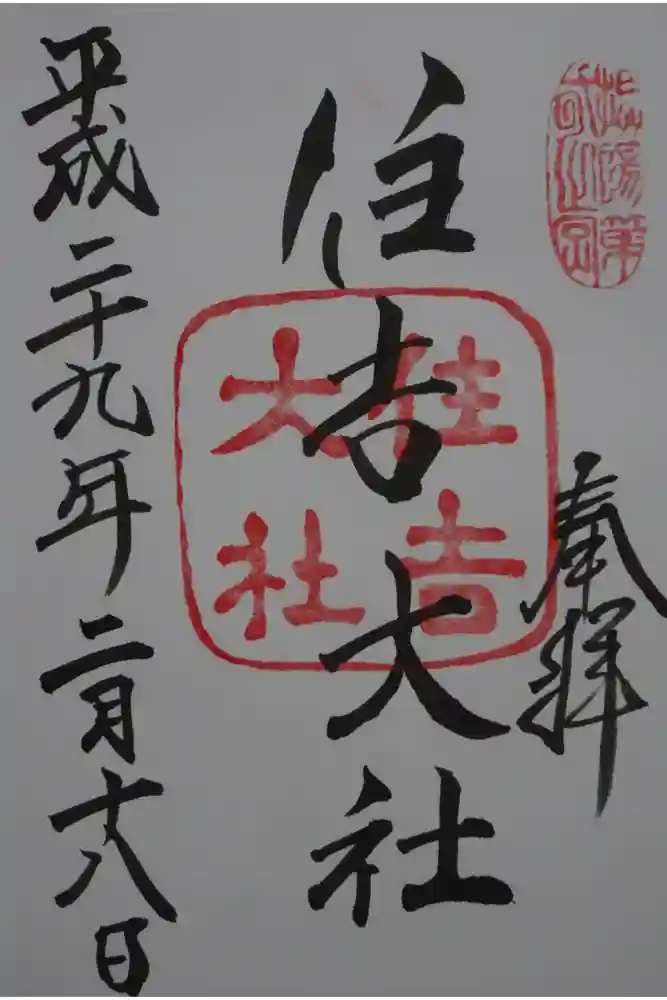 奉拝
住吉大社
住吉
大社
平成二十九年二月十八日